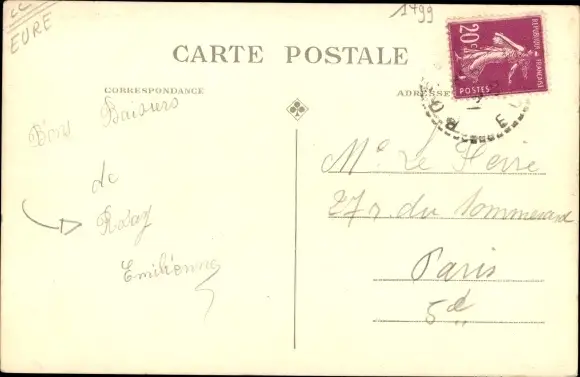 CC
EURE
1499
CARTE POSTALE
CORRESPONDANCE
ADRESSE
20c
REPUBLIQUE
FRANÇAISE
POSTES
Bons Baisers
de
Emilienne
Me Le
27 r. du Sommerard
Paris
5e